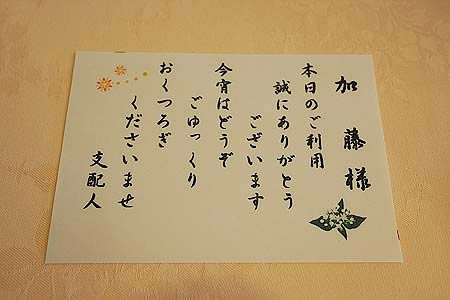 加藤様
本日のご利用
誠にありがとう
ございます
今宵はどうぞ
ごゆっくり
おくつろぎ
くださいませ
支配人